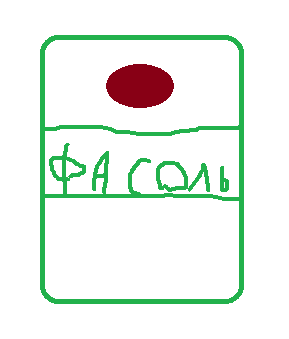 ФАСОЛЬ